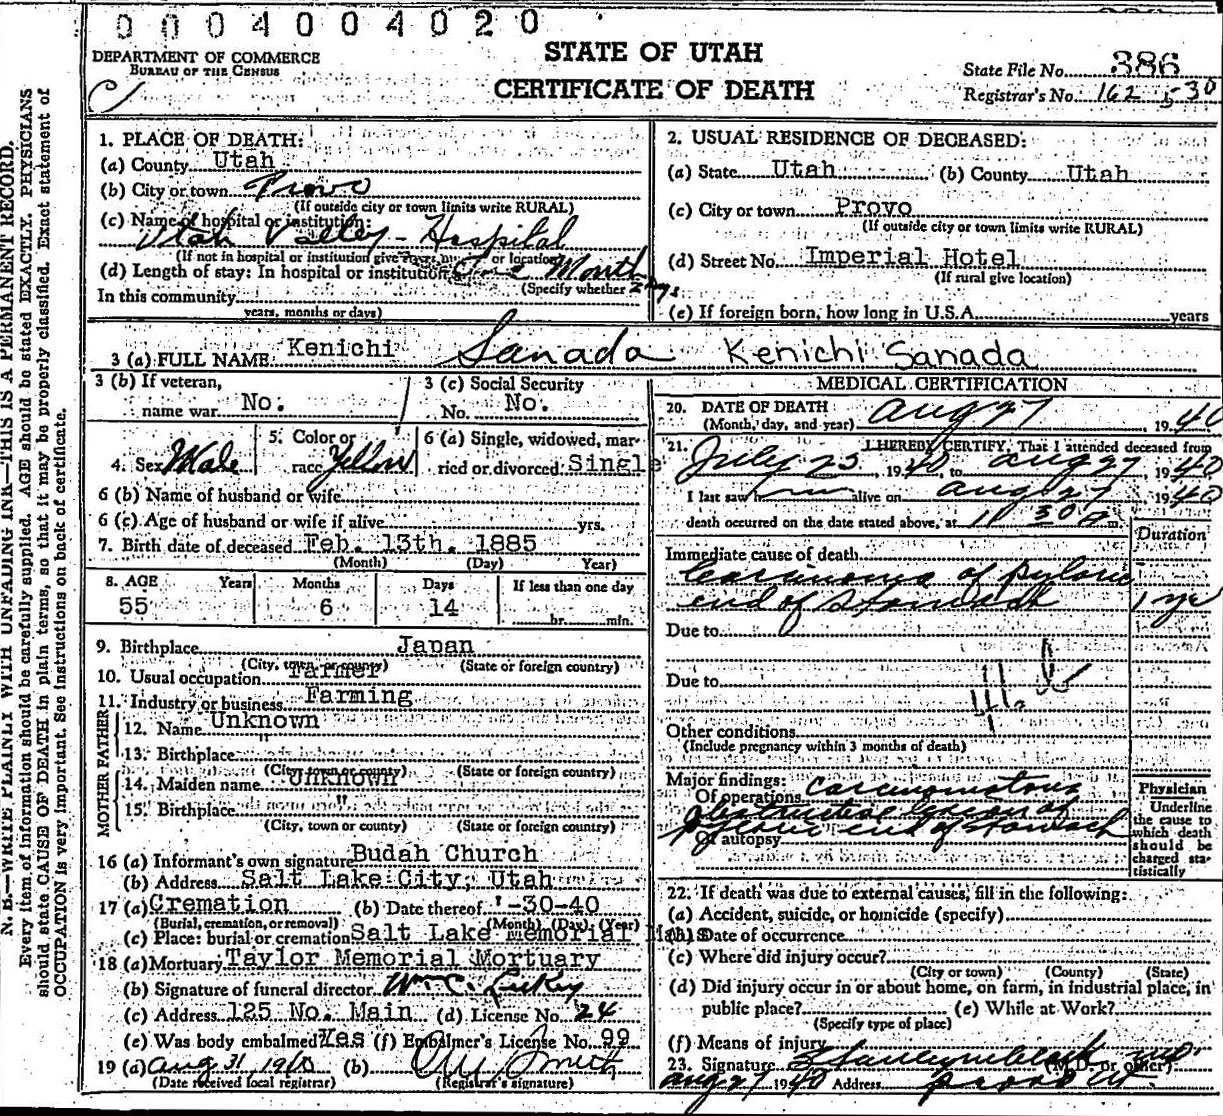 0004004020
DEPARTMENT OF COMMERCE
BUREAU OF THE CENSUS
STATE OF UTAH
CERTIFICATE OF DEATH
State File No. 386
Registrar's No. 162 530
N. B.—WRITE PLAINLY WITH UNFADING INK—THIS IS A PERMANENT RECORD.
Every item of information should be carefully supplied. AGE should be stated EXACTLY. PHYSICIANS
should state CAUSE OF DEATH in plain terms, so that it may be properly classified. Exact statement of
OCCUPATION is very important. See instructions on back of certificate.
1. PLACE OF DEATH:
(a) County Utah
(b) City or town Provo
(If outside city or town limits write RURAL)
(c) Name of hospital or institution:
Utah Valley - Hospital
(If not in hospital or institution give or location)
(d) Length of stay: In hospital or institution One Month
(Specify whether 2 Days
In this community
years, months or days)
2. USUAL RESIDENCE OF DECEASED:
(a) State Utah (b) County Utah
(c) City or town Provo
(If outside city or town limits write RURAL)
(d) Street No. Imperial Hotel
(If rural give location)
(e) If foreign born, how long in U.S.A. years
3 (a) FULL NAME Kenichi Sanada Kenichi Sanada
3 (b) If veteran,
name war No.
3 (c) Social Security
No. No.
4. Sex Male
5. Color or
race Yellow
6 (a) Single, widowed, mar-
ried or divorced: Single
6 (b) Name of husband or wife
6 (c) Age of husband or wife if alive yrs.
7. Birth date of deceased Feb. 13th. 1885
(Month) (Day) Year)
8. AGE Years Months Days If less than one day
55 6 14 hr. min.
9. Birthplace Japan
(City, town, or county) (State or foreign country)
10. Usual occupation Farmer
11. Industry or business Farming
FATHER
12. Name Unknown
13. Birthplace "
(City, town or county) (State or foreign country)
MOTHER
14. Maiden name Unknown
15. Birthplace "
(City, town or county) (State or foreign country)
16 (a) Informant's own signature Budah Church
(b) Address Salt Lake City, Utah
17 (a) Cremation (b) Date thereof -30-40
(Burial, cremation, or removal) (Month) (Day) (Year)
(c) Place: burial or cremation Salt Lake Memorial
18 (a) Mortuary Taylor Memorial Mortuary
(b) Signature of funeral director Wm. C.
(c) Address 125 No. Main (d) License No. 24
(e) Was body embalmed? Yes (f) Embalmer's License No. 99
19 (a) Aug 31, 1940 (b) Smith
(Date received local registrar) (Registrar's signature)
MEDICAL CERTIFICATION
20. DATE OF DEATH
(Month, day, and year) Aug 27 1940
21. I HEREBY CERTIFY, That I attended deceased from
July 25, 1940 to Aug 27 1940
I last saw him alive on Aug 27 1940
death occurred on the date stated above, at 11 30 A m.
Duration
Immediate cause of death
Carcinoma of pyloric
end of stomach 1 yr
Due to
Due to
46 b
Other conditions
(Include pregnancy within 3 months of death)
Major findings:
Of operations Carcinomatous
obstructive lesion of
pyloric end of stomach
Of autopsy
Physician
Underline
the cause to
which death
should be
charged sta-
tistically
22. If death was due to external causes, fill in the following:
(a) Accident, suicide, or homicide (specify)
(b) Date of occurrence
(c) Where did injury occur?
(City or town) (County) (State)
(d) Did injury occur in or about home, on farm, in industrial place, in
public place? (e) While at Work?
(Specify type of place)
(f) Means of injury
23. Signature M.D.
(M.D. or other)
Aug 27 1940 Address Provo Ut